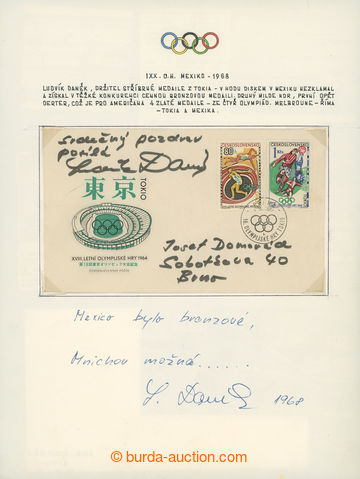 IXX. O.H. MEXIKO - 1968
LUDVÍK DANĚK, DRŽITEL STŘÍBRNÉ MEDAILE Z TOKIA - V HODU DISKEM V MEXIKU NEZKLAMAL
A ZÍSKAL V TĚŽKÉ KONKURENCI CENNOU BRONZOVOU MEDAILI. DRUHÝ MILDE NDR, PRVNÍ OPĚT
OERTER, COŽ JE PRO AMERIČANA 4 ZLATÉ MEDAILE - ZE ČTYŘ OLYMPIÁD. MELBOURNE - ŘÍMA
- TOKIA A MEXIKA.
Srdečný pozdrav
posílá
東京
TOKIO
XVIII. LETNÍ OLYMPIJSKÉ HRY 1964
第18回東京オリンピック大会記念
ČESKOSLOVENSKÁ POŠTA
80
ČESKOSLOVENSKO
1 Kčs
ČESKOSLOVENSKO
Josef Domorád
Sobotkova 40
Brno
Mexico bylo bronzové,
Mnichov možná.......
L. Daněk 1968
burda-auction.com